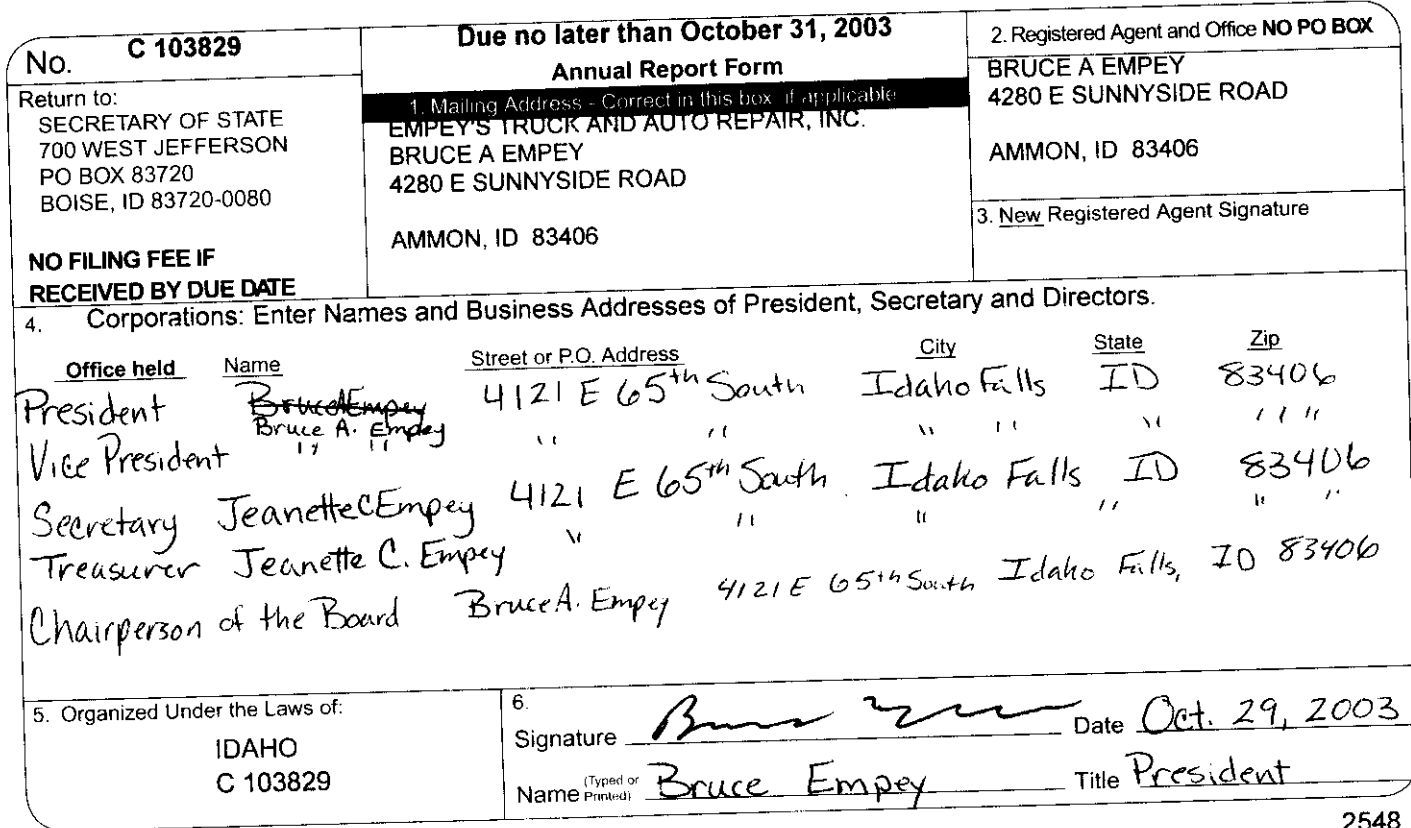 No. C 103829
Return to:
SECRETARY OF STATE
700 WEST JEFFERSON
PO BOX 83720
BOISE, ID 83720-0080
NO FILING FEE IF
RECEIVED BY DUE DATE
Due no later than October 31, 2003
Annual Report Form
1. Mailing Address - Correct in this box if applicable
EMPEY'S TRUCK AND AUTO REPAIR, INC.
BRUCE A EMPEY
4280 E SUNNYSIDE ROAD
AMMON, ID 83406
2. Registered Agent and Office NO PO BOX
BRUCE A EMPEY
4280 E SUNNYSIDE ROAD
AMMON, ID 83406
3. New Registered Agent Signature
4. Corporations: Enter Names and Business Addresses of President, Secretary and Directors.
Office held Name Street or P.O. Address City State Zip
President Bruce A Empey 4121 E 65th South Idaho Falls ID 83406
Bruce A. Empey
Vice President " " " " " " " " "
Secretary Jeanette C Empey 4121 E 65th South Idaho Falls ID 83406
Treasurer Jeanette C. Empey " " " " " "
Chairperson of the Board Bruce A. Empey 4121 E 65th South Idaho Falls, ID 83406
5. Organized Under the Laws of:
IDAHO
C 103829
6.
Signature Date Oct. 29, 2003
Name (Typed or Printed) Bruce Empey Title President
2548